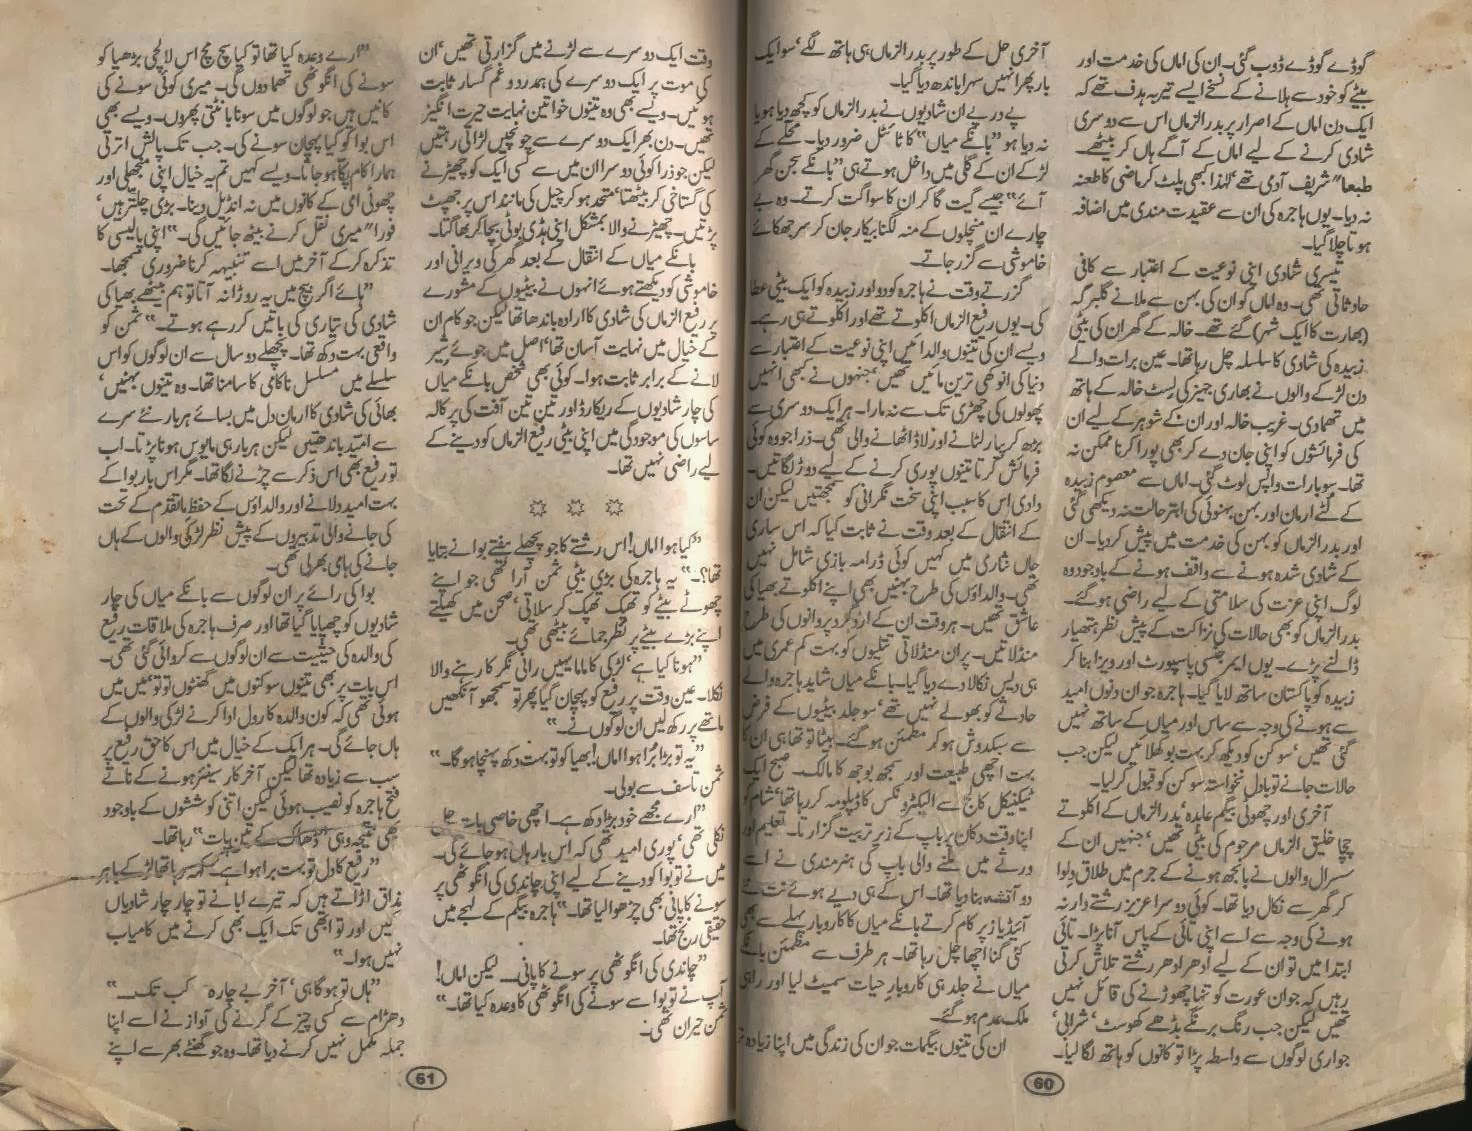 گوڈے گوڈے ڈوب گئی۔ ان کی اماں کی خدمت اور
بیٹے کو خود سے ہلانے کے نسخے ایسے تیر بہ ہدف تھے کہ
ایک دن اماں کے اصرار پر بدر الزماں اس سے دوسری
شادی کرنے کے لیے اماں کے آگے ہاں کر بیٹھے۔
طبعا" شریف آدمی تھے' لہٰذا بھی پلٹ کر ماضی کا طعنہ
نہ دیا۔ یوں ہاجرہ کی ان سے عقیدت مندی میں اضافہ
ہوتا چلا گیا۔
تیسری شادی اپنی نوعیت کے اعتبار سے کافی
حادثاتی تھی۔ وہ اماں کو ان کی بہن سے ملانے گلبرگہ
(بھارت کا ایک شہر) گئے تھے۔ خالہ کے گھر ان کی بیٹی
زبیدہ کی شادی کا سلسلہ چل رہا تھا۔ عین برات والے
دن لڑکے والوں نے بھاری جہیز کی لسٹ خالہ کے ہاتھ
میں تھما دی۔ غریب خالہ اور ان کے شوہر کے لیے ان
کی فرمائشوں کو اپنی جان دے کر بھی پورا کرنا ممکن نہ
تھا۔ سو بارات واپس لوٹ گئی۔ اماں سے معصوم زبیدہ
کے لٹے ارمان اور بہن بہنوئی کی ابتر حالت نہ دیکھی گئی
اور بدر الزماں کو بہن کی خدمت میں پیش کر دیا۔ ان
کے شادی شدہ ہونے سے واقف ہونے کے باوجود وہ
لوگ اپنی عزت کی سلامتی کے لیے راضی ہو گئے۔
بدر الزماں کو بھی حالات کی نزاکت کے پیش نظر ہتھیار
ڈالنے پڑے۔ یوں ایمرجنسی پاسپورٹ اور ویزا بنا کر
زبیدہ کو پاکستان ساتھ لایا گیا۔ ہاجرہ جو ان دنوں امید
سے ہونے کی وجہ سے ساس اور میاں کے ساتھ نہیں
گئی تھیں' سوکن کو دیکھ کر بہت بوکھلائیں لیکن جب
حالات جانے تو بادل نخواستہ سوکن کو قبول کر لیا۔
آخری اور چھوٹی بیگم عابدہ' بدر الزماں کے اکلوتے
چچا خلیق الزماں مرحوم کی بیٹی تھیں' جنہیں ان کے
سسرال والوں نے بانجھ ہونے کے جرم میں طلاق دلوا
کر گھر سے نکال دیا تھا۔ کوئی دوسرا عزیز رشتے دار نہ
ہونے کی وجہ سے اسے اپنی تائی کے پاس آنا پڑا۔ تائی
ابتدا میں تو ان کے لیے ادھر ادھر رشتے تلاش کرتی
رہیں کہ جوان عورت کو تنہا چھوڑنے کی قائل نہیں
تھیں لیکن جب رنگ برنگے بڈھے کھوسٹ' شرابی'
جواری لوگوں سے واسطہ پڑا تو کانوں کو ہاتھ لگا لیا۔
آخری حل کے طور پر بدر الزماں ہی ہاتھ لگے' سو ایک
بار پھر انہیں سہرا باندھ دیا گیا۔
پے در پے ان شادیوں نے بدر الزماں کو کچھ دیا ہو یا
نہ دیا ہو "بانکے میاں" کا ٹائٹل ضرور دیا۔ محلے کے
لڑکے ان کے گلی میں داخل ہوتے ہی "بانکے سجن گھر
آئے" جیسے گیت گا کر ان کا سواگت کرتے۔ وہ بے
چارے ان منچلوں کے منہ لگنا بیکار جان کر سر جھکائے
خاموشی سے گزر جاتے۔
گزرتے وقت نے ہاجرہ کو دو اور زبیدہ کو ایک بیٹی عطا
کی۔ یوں رفیع الزماں اکلوتے تھے اور اکلوتے ہی رہے۔
ویسے ان کی تینوں والدائیں اپنی نوعیت کے اعتبار سے
دنیا کی انوکھی ترین مائیں تھیں' جنہوں نے کبھی انہیں
پھولوں کی چھڑی تک سے نہ مارا۔ ہر ایک دوسری سے
بڑھ کر پیار لٹانے اور لاڈ اٹھانے والی تھی۔ ذرا جو وہ کوئی
فرمائش کرتا تینوں پوری کرنے کے لیے دوڑ لگاتیں۔
دادی اس کا سبب اپنی سخت نگرانی کو سمجھتیں لیکن ان
کے انتقال کے بعد وقت نے ثابت کیا کہ اس ساری
جاں نثاری میں کہیں کوئی ڈرامہ بازی شامل نہیں
تھی۔ والداؤں کی طرح بہنیں بھی اپنے اکلوتے بھیا کی
عاشق تھیں۔ ہر وقت ان کے ارد گرد پروانوں کی طرح
منڈلاتیں۔ پر ان منڈلاتی تتلیوں کو بہت کم عمری میں
ہی دیس نکالا دے دیا گیا۔ بانکے میاں شاید ہاجرہ والے
حادثے کو بھولے نہیں تھے' سو جلد بیٹیوں کے فرض
سے سبکدوش ہو کر مطمئن ہو گئے۔ بیٹا تو تھا ہی ان کا
بہت اچھی طبیعت اور سمجھ بوجھ کا مالک۔ صبح ایک
ٹیکنیکل کالج سے الیکٹرونکس کا ڈپلومہ کر رہا تھا' شام کو
اپنا وقت دکان پر باپ کے زیر تربیت گزارتا۔ تعلیم اور
ورثے میں ملنے والی باپ کی ہنر مندی نے اسے
دو آتشہ بنا دیا تھا۔ اس کے ہی دیے ہوئے نت نئے
آئیڈیاز پر کام کرتے بانکے میاں کا کاروبار پہلے سے بھی
کئی گنا اچھا چل رہا تھا۔ ہر طرف سے مطمئن بانکے
میاں نے جلد ہی کاروبار حیات سمیٹ لیا اور راہی
ملک عدم ہو گئے۔
ان کی تینوں بیگمات جو ان کی زندگی میں اپنا زیادہ تر
60
وقت ایک دوسرے سے لڑنے میں گزارتی تھیں' ان
کی موت پر ایک دوسرے کی ہمدرد و غم گسار ثابت
ہوئیں۔ ویسے بھی وہ تینوں خواتین نہایت حیرت انگیز
تھیں۔ دن بھر ایک دوسرے سے چونچیں لڑاتی رہتیں
لیکن جو ذرا کوئی دوسرا ان میں سے کسی ایک کو چھیڑنے
کی گستاخی کر بیٹھتا' متحد ہو کر چیل کی مانند اس پر جھپٹ
پڑتیں۔ چھیڑنے والا بمشکل اپنی ہڈی بوٹی بچا کر بھاگتا۔
بانکے میاں کے انتقال کے بعد گھر کی ویرانی اور
خاموشی کو دیکھتے ہوئے انہوں نے بیٹیوں کے مشورے
پر رفیع الزماں کی شادی کا ارادہ باندھا تھا لیکن جو کام ان
کے خیال میں نہایت آسان تھا' اصل میں جوئے شیر
لانے کے برابر ثابت ہوا۔ کوئی بھی شخص بانکے میاں
کی چار شادیوں کے ریکارڈ اور تین تین آفت کی پرکالہ
ساسوں کی موجودگی میں اپنی بیٹی رفیع الزماں کو دینے کے
لیے راضی نہیں تھا۔
"کیا ہوا اماں! اس رشتے کا جو پچھلے ہفتے بوا نے بتایا
تھا؟" یہ ہاجرہ کی بڑی بیٹی ثمن آرا تھی جو اپنے
چھوٹے بیٹے کو تھپک تھپک کر سلاتی' صحن میں کھیلتے
اپنے بڑے بیٹے پر نظر جمائے بیٹھی تھی۔
"ہونا کیا ہے' لڑکی کا ماما یہیں رانی نگر کا رہنے والا
نکلا۔ عین وقت پر رفیع کو پہچان گیا پھر تو سمجھو آنکھیں
ماتھے پر رکھ لیں ان لوگوں نے۔"
"یہ تو بڑا برا ہوا اماں! بھیا کو تو بہت دکھ پہنچا ہوگا۔"
ثمن تاسف سے بولی۔
"ارے مجھے خود بڑا دکھ ہے۔ اچھی خاصی بات چل
نکلی تھی' پوری امید تھی کہ اس بار ہاں ہو جائے گی۔
میں نے تو بوا کو دینے کے لیے اپنی چاندی کی انگوٹھی پر
سونے کا پانی بھی چڑھوا لیا تھا۔" ہاجرہ بیگم کے لہجے میں
حقیقی رنج تھا۔
"چاندی کی انگوٹھی پر سونے کا پانی... لیکن اماں!
آپ نے تو بوا سے سونے کی انگوٹھی کا وعدہ کیا تھا۔"
ثمن حیران تھی۔
"ارے وعدہ کیا تھا تو کیا سچ مچ اس لالچی بڑھیا کو
سونے کی انگوٹھی تھما دوں گی۔ میری کوئی سونے کی
کانیں ہیں جو لوگوں میں سونا بانٹتی پھروں۔ ویسے بھی
اس بوا کو کیا پہچان سونے کی۔ جب تک پالش اترتی
ہمارا کام پکا ہو جاتا۔ ویسے کہیں تم یہ خیال اپنی منجھلی اور
چھوٹی امی کے کانوں میں نہ انڈیل دینا۔ بڑی چلتر ہیں'
فورا" میری نقل کرنے بیٹھ جائیں گی۔" اپنی پالیسی کا
تذکرہ کر کے آخر میں اسے تنبیہہ کرنا ضروری سمجھا۔
"ہائے اگر بیچ میں یہ روڑا نہ آتا تو ہم بیٹھے بھیا کی
شادی کی تیاری کی باتیں کر رہے ہوتے۔" ثمن کو
واقعی بہت دکھ تھا۔ پچھلے دو سال سے ان لوگوں کو اس
سلسلے میں مسلسل ناکامی کا سامنا تھا۔ وہ تینوں بہنیں'
بھائی کی شادی کا ارمان دل میں بسائے ہر بار نئے سرے
سے امید باندھتیں لیکن ہر بار ہی مایوس ہونا پڑتا۔ اب
تو رفیع بھی اس ذکر سے چڑنے لگا تھا۔ مگر اس بار بوا کے
بہت امید دلانے اور والداؤں کے حفظ ماتقدم کے تحت
کی جانے والی تدبیروں کے پیش نظر لڑکی والوں کے ہاں
جانے کی ہامی بھر لی تھی۔
بوا کی رائے پر ان لوگوں سے بانکے میاں کی چار
شادیوں کو چھپایا گیا تھا اور صرف ہاجرہ کی ملاقات رفیع
کی والدہ کی حیثیت سے ان لوگوں سے کروائی گئی تھی۔
اس بات پر بھی تینوں سوکنوں میں گھنٹوں تو تو' میں میں
ہوئی تھی کہ کون والدہ کا رول ادا کرنے لڑکی والوں کے
ہاں جائے گی۔ ہر ایک کے خیال میں اس کا حق رفیع پر
سب سے زیادہ تھا لیکن آخر کار سینئر ہونے کے ناتے
فتح ہاجرہ کو نصیب ہوئی لیکن اتنی کوششوں کے باوجود
بھی نتیجہ وہی "ڈھاک کے تین پات" رہا تھا۔
"رفیع کا دل تو بہت برا ہوا ہے۔ کہہ رہا تھا لڑکے باہر
مذاق اڑاتے ہیں کہ تیرے ابا نے تو چار چار شادیاں
کیں اور تو ابھی تک ایک بھی کرنے میں کامیاب
نہیں ہوا۔"
"ہاں تو ہوگا ہی' آخر بے چارہ کب تک..."
دھڑام سے کسی چیز کے گرنے کی آواز نے اسے اپنا
جملہ مکمل نہیں کرنے دیا تھا۔ وہ جو گھنٹے بھر سے اپنے
61